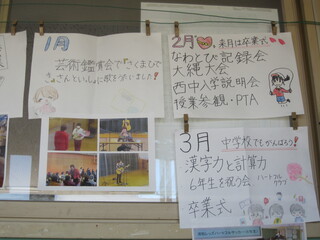 1月
芸術鑑賞会で"さくまひで
きさんといっしょに歌を歌いました!
2月 来月は卒業式
なわとび記録会
大縄大会
西中入学説明会
授業参観・PTA
3月 中学校でもがんばろう!
漢字力と計算力
6年生を祝う会 ハートフル
クラブ
卒業式